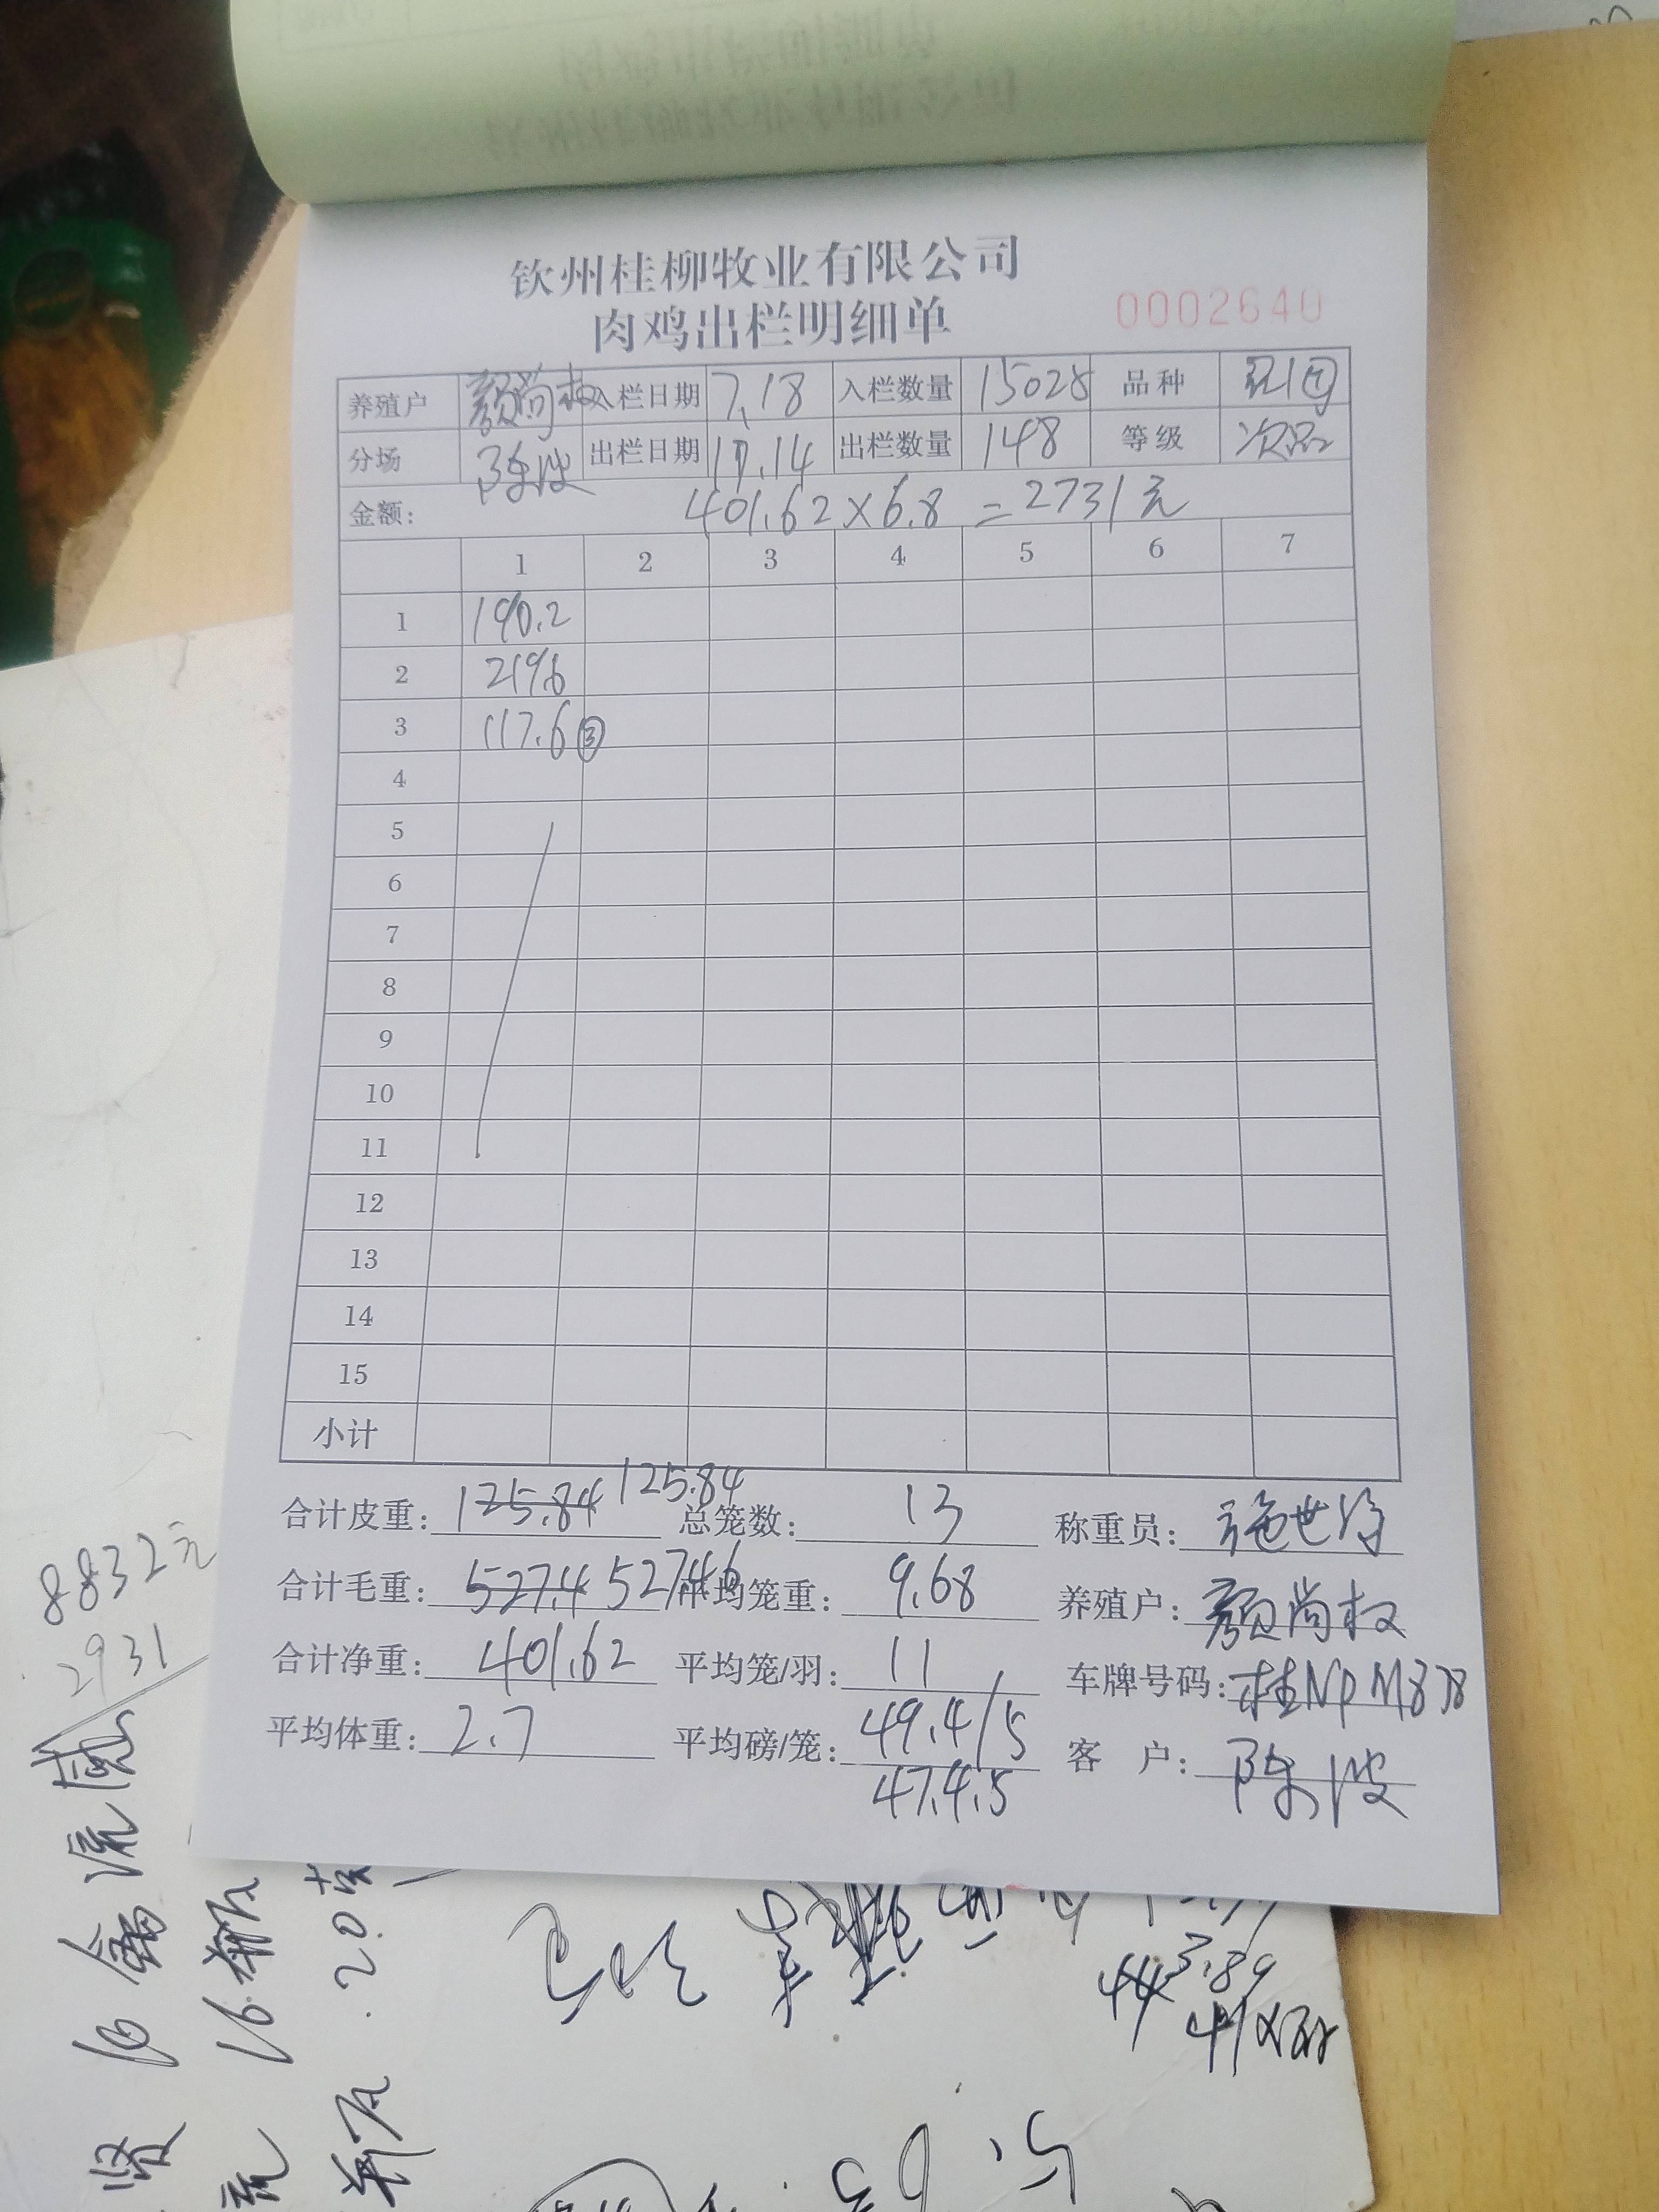 钦州桂柳牧业有限公司
肉鸡出栏明细单
0002640
养殖户 颜尚权 入栏日期 7.18 入栏数量 15028 品种
分场 陈波 出栏日期 11.14 出栏数量 148 等级 次品
金额: 401.62×6.8=2731元
1 2 3 4 5 6 7
1 190.2
2 219.6
3 117.6 ③
4
5
6
7
8
9
10
11
12
13
14
15
小计
合计皮重: 125.84 125.84 总笼数: 13 称重员:
合计毛重: 527.4 527.46 平均笼重: 9.68 养殖户: 颜尚权
合计净重: 401.62 平均笼/羽: 11 车牌号码: 桂NPM878
平均体重: 2.7 平均磅/笼: 49.4/5 客 户: 陈波
47.4.5
8832元
2931
禽流感
443.89